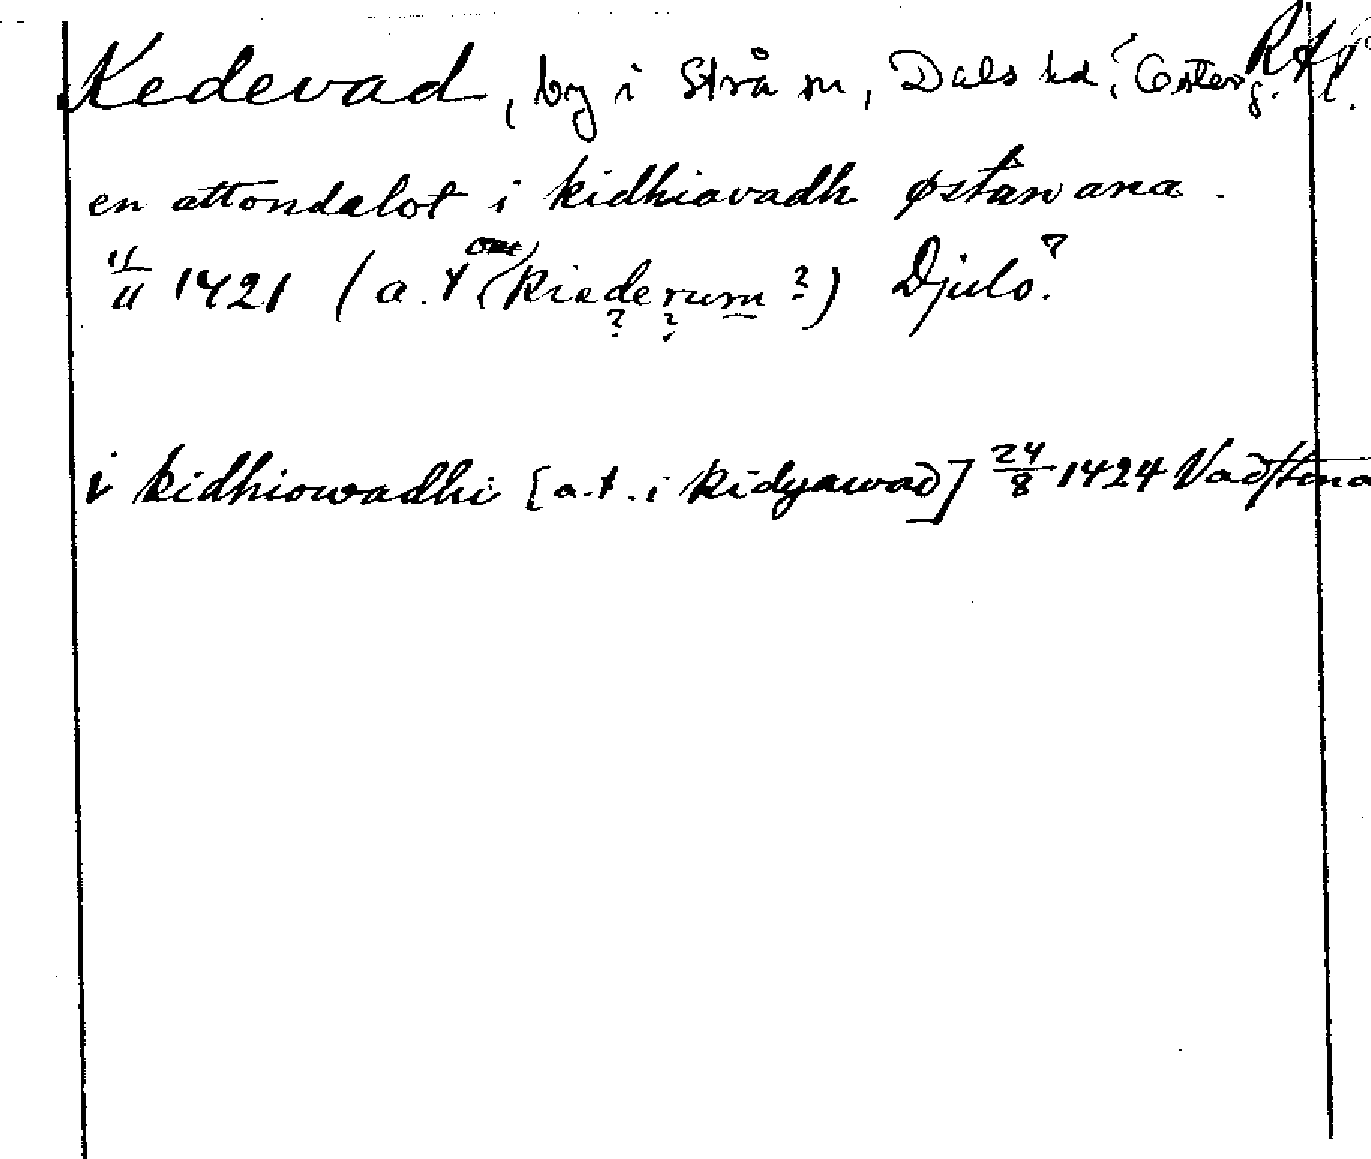 Kedevad, by i Strå sn, Dals hd, Österg. RAP.
en attondalot i kidhiavadh østan ana.
11/11 1421 (a.t (kiederum ?) Djulö.
i kidhiowadhi [a.t. i kidyawad] 24/8 1424 Vadstena